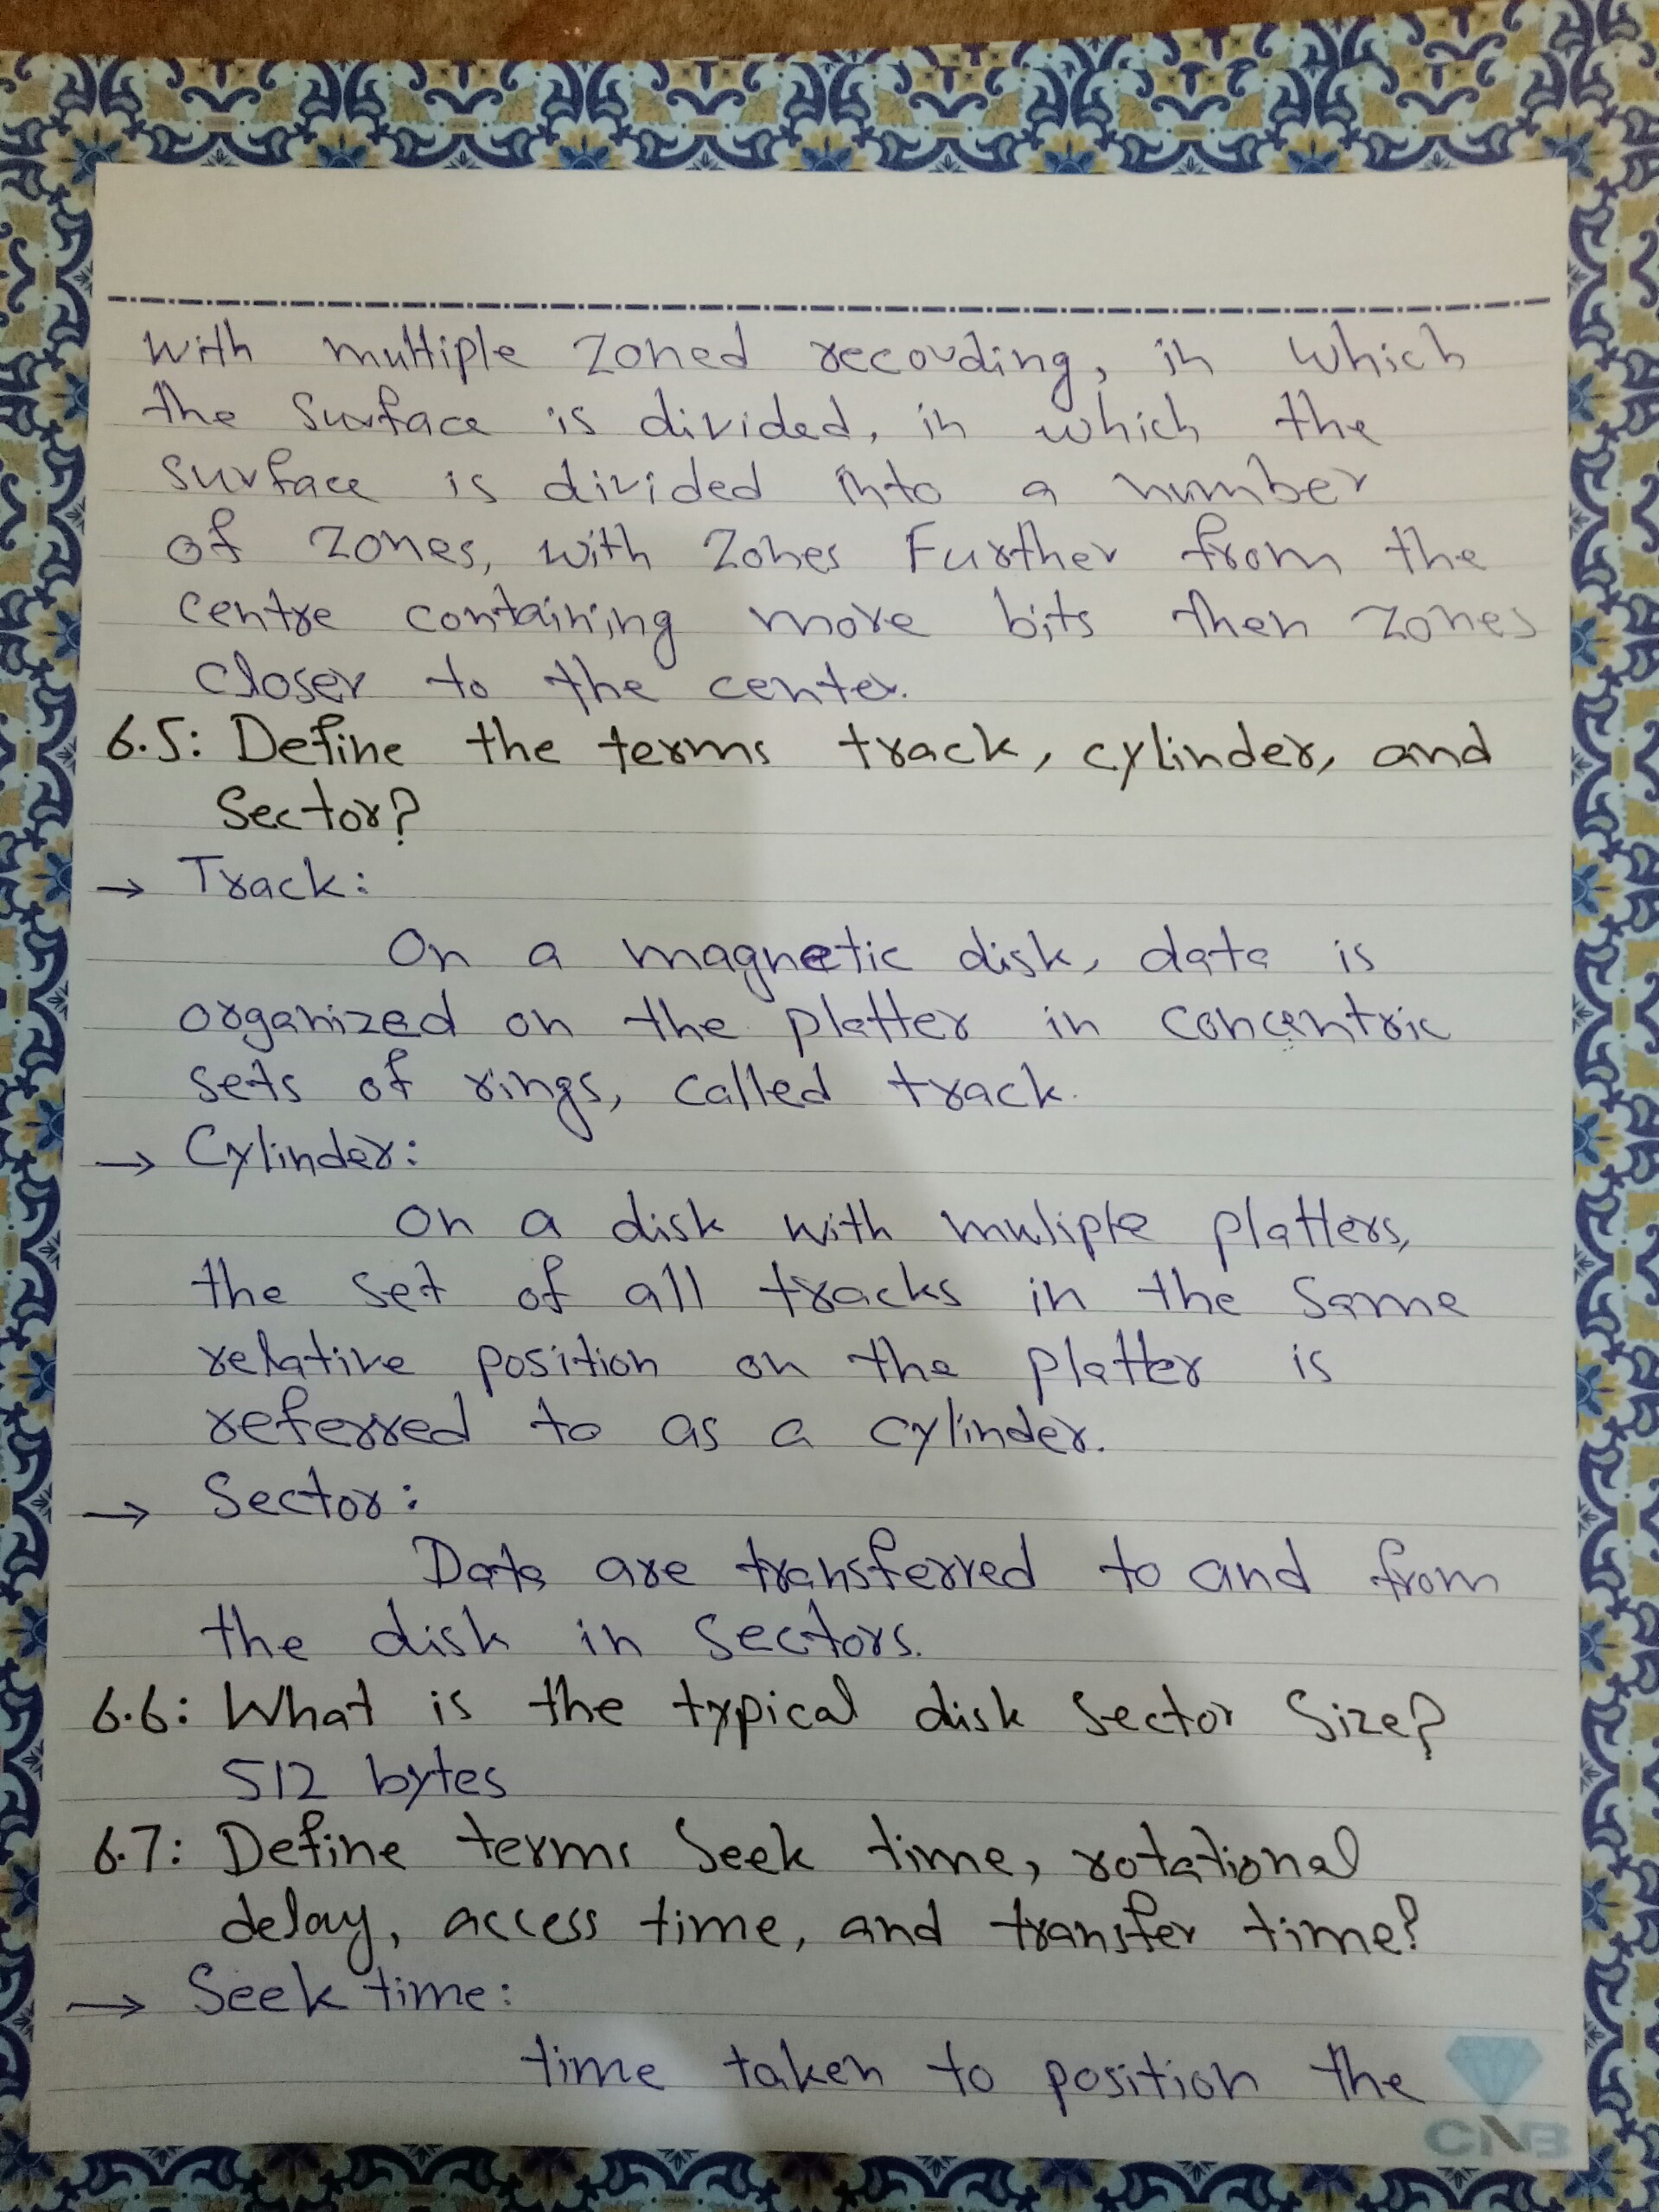 With multiple zoned recording, in which
the surface is divided, in which the
surface is divided into a number
of zones, with zones Further from the
centre containing more bits then zones
closer to the center.
6.5: Define the terms track, cylinder, and
Sector?
→ Track:
On a magnetic disk, data is
organized on the platter in concentric
sets of rings, called track.
→ Cylinder:
On a disk with muliple platters,
the set of all tracks in the same
relative position on the platter is
referred to as a cylinder.
→ Sector:
Data are transferred to and from
the disk in sectors.
6.6: What is the typical disk sector size?
512 bytes
6.7: Define terms seek time, rotational
delay, access time, and transfer time?
→ Seek time:
time taken to position the
CNB